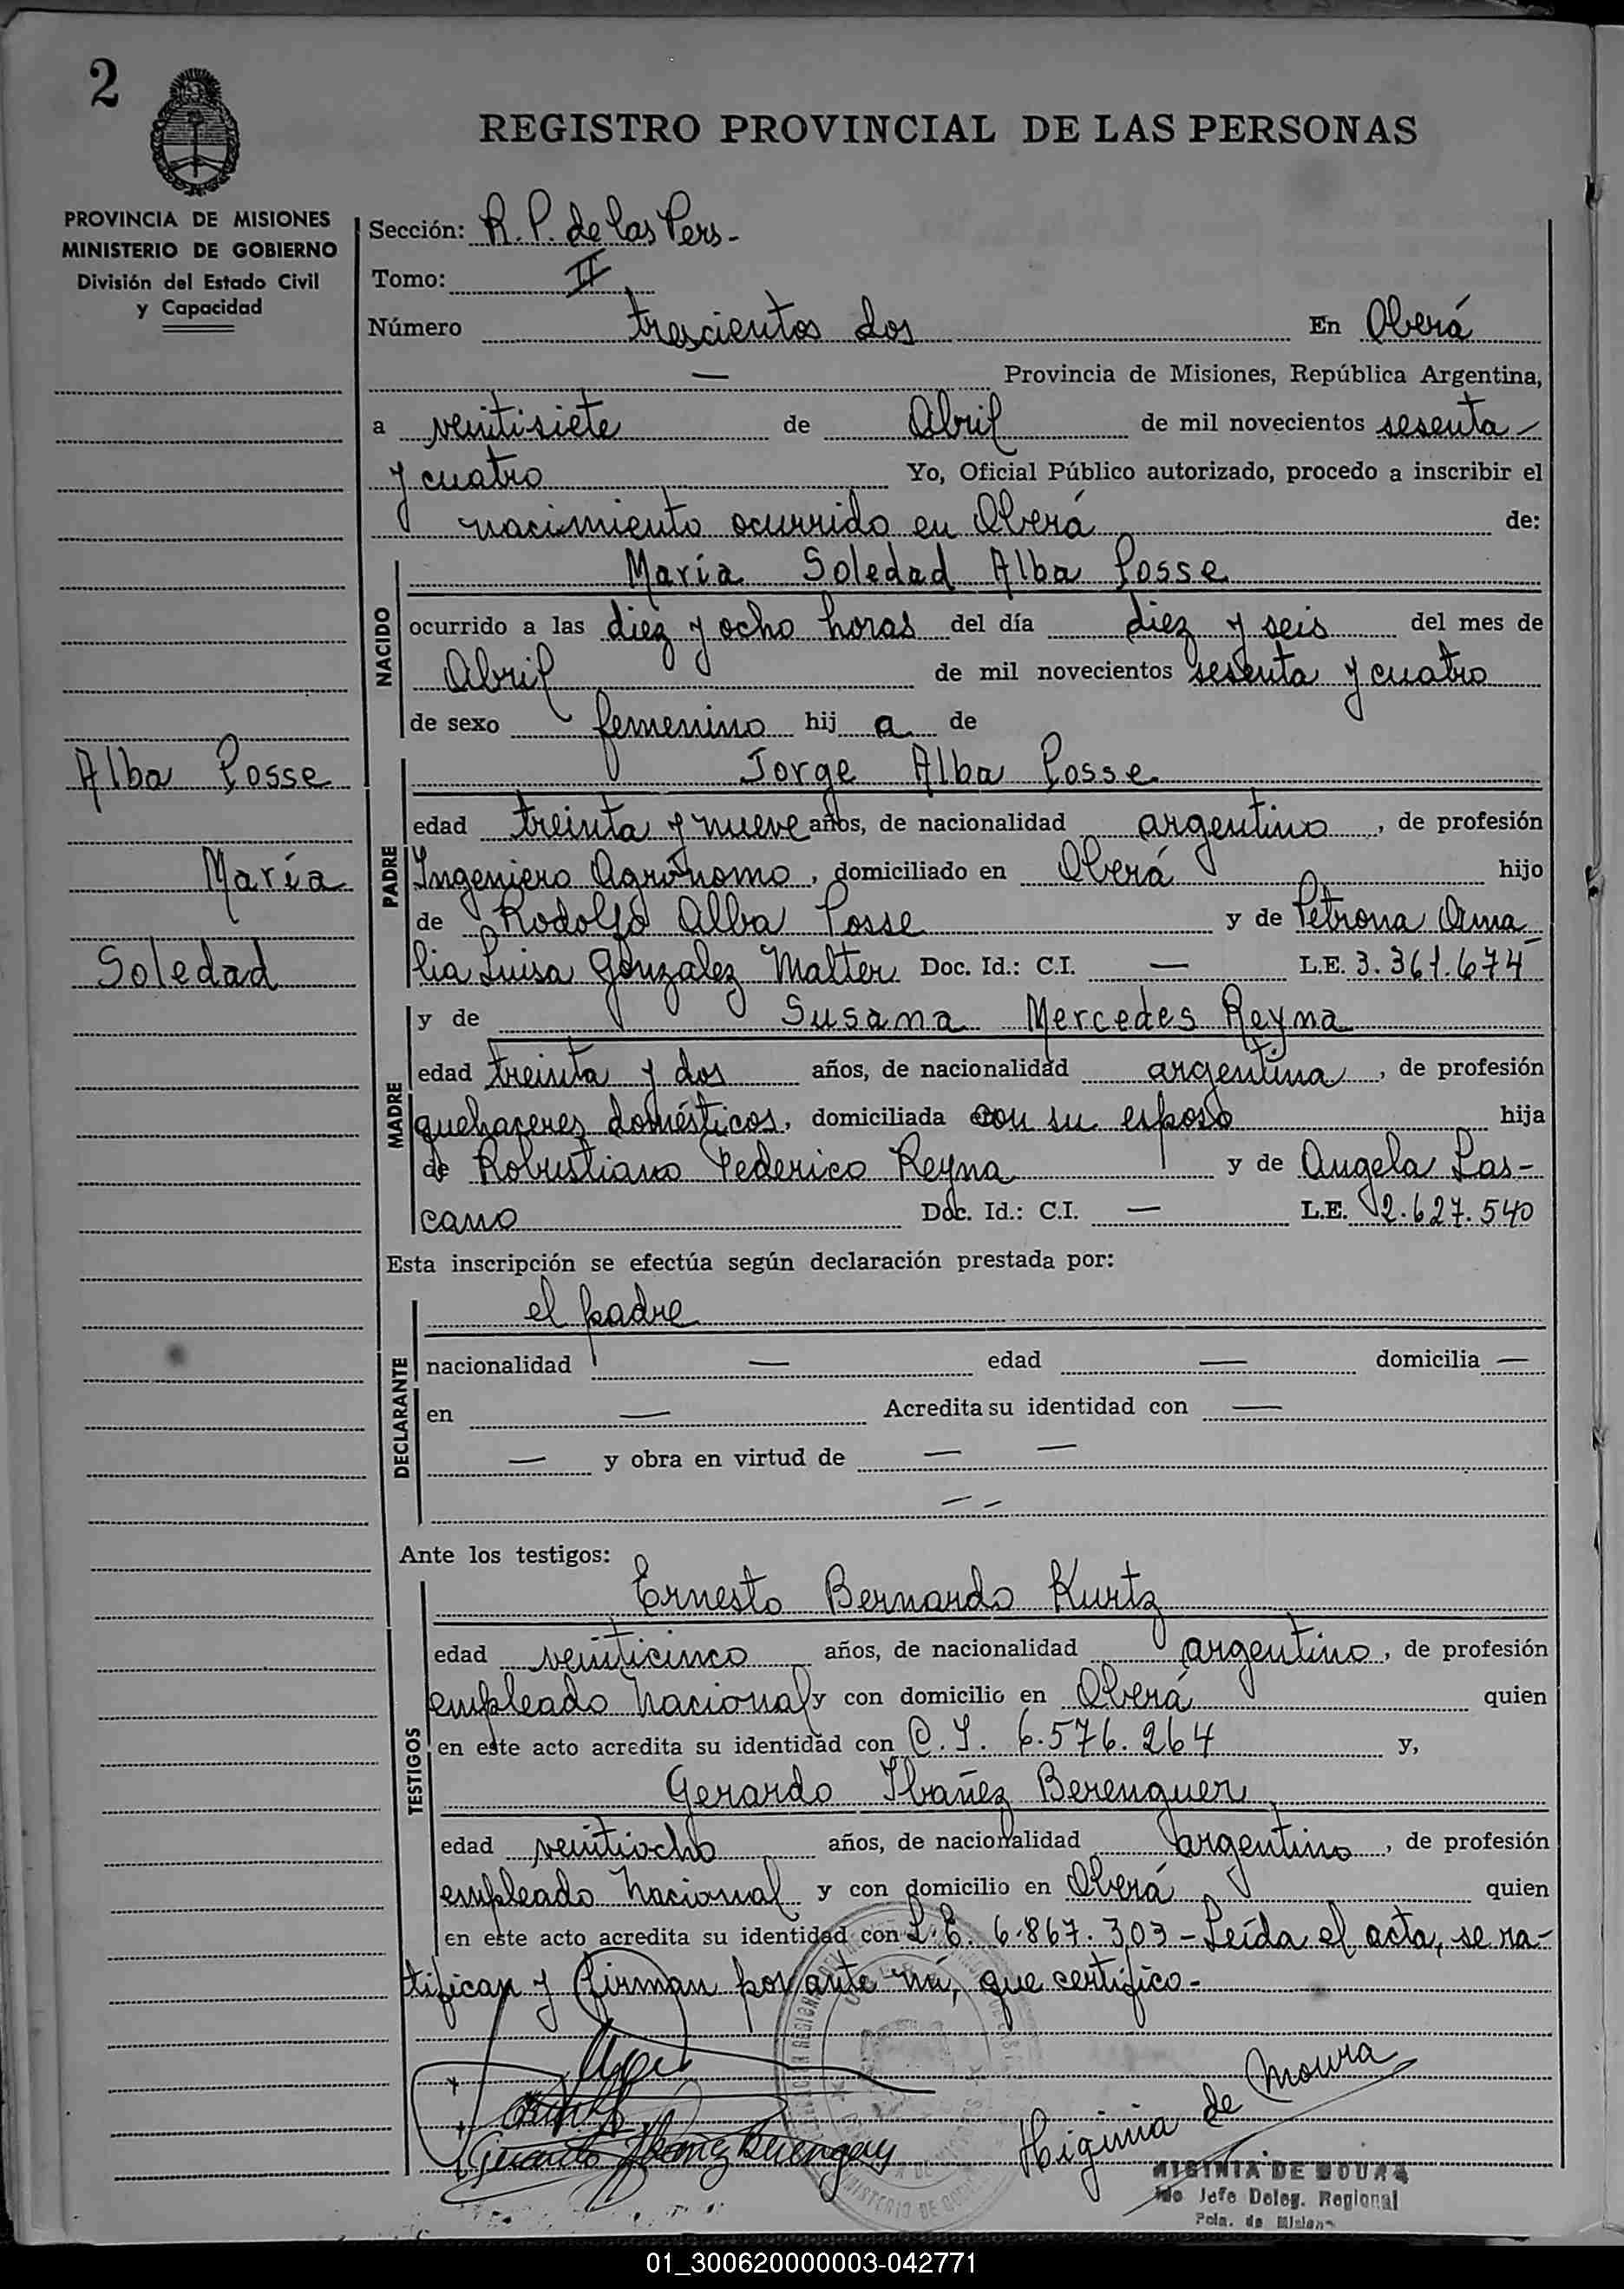 2
REGISTRO PROVINCIAL DE LAS PERSONAS
PROVINCIA DE MISIONES
MINISTERIO DE GOBIERNO
División del Estado Civil
y Capacidad
Alba Posse
María
Soledad
Sección: R. P. de las Pers-
Tomo: II
Número trescientos dos En Oberá
— Provincia de Misiones, República Argentina,
a veintisiete de Abril de mil novecientos sesenta
y cuatro Yo, Oficial Público autorizado, procedo a inscribir el
nacimiento ocurrido en Oberá de:
NACIDO
María Soledad Alba Posse
ocurrido a las diez y ocho horas del día diez y seis del mes de
Abril de mil novecientos sesenta y cuatro
de sexo femenino hij a de
PADRE
Jorge Alba Posse
edad treinta y nueve años, de nacionalidad argentino, de profesión
Ingeniero Agrónomo, domiciliado en Oberá hijo
de Rodolfo Alba Posse y de Petrona Ama
lia Luisa Gonzalez Malter Doc. Id.: C.I. — L.E. 3.361.674
MADRE
y de Susana Mercedes Reyna
edad treinta y dos años, de nacionalidad argentina, de profesión
quehaceres domésticos, domiciliada con su esposo hija
de Robustiano Federico Reyna y de Angela Las-
cano Doc. Id.: C.I. — L.E. 2.627.540
Esta inscripción se efectúa según declaración prestada por:
DECLARANTE
el padre
nacionalidad — edad — domicilia —
en — Acredita su identidad con —
— y obra en virtud de — —
— —
Ante los testigos:
TESTIGOS
Ernesto Bernardo Kurtz
edad veinticinco años, de nacionalidad argentino, de profesión
empleado nacional y con domicilio en Oberá quien
en este acto acredita su identidad con C.I. 6.576.264 y,
Gerardo Ibañez Berenguer
edad veintiocho años, de nacionalidad argentino, de profesión
empleado nacional y con domicilio en Oberá quien
en este acto acredita su identidad con L.E. 6.867.303 - Leída el acta, se ra-
tifican y firman por ante mí, que certifico-
Gerardo Ibañez Berenguer
Higinia de Moura
HIGINIA DE MOURA
Jefe Deleg. Regional
Pcia. de Mision
01_300620000003-042771